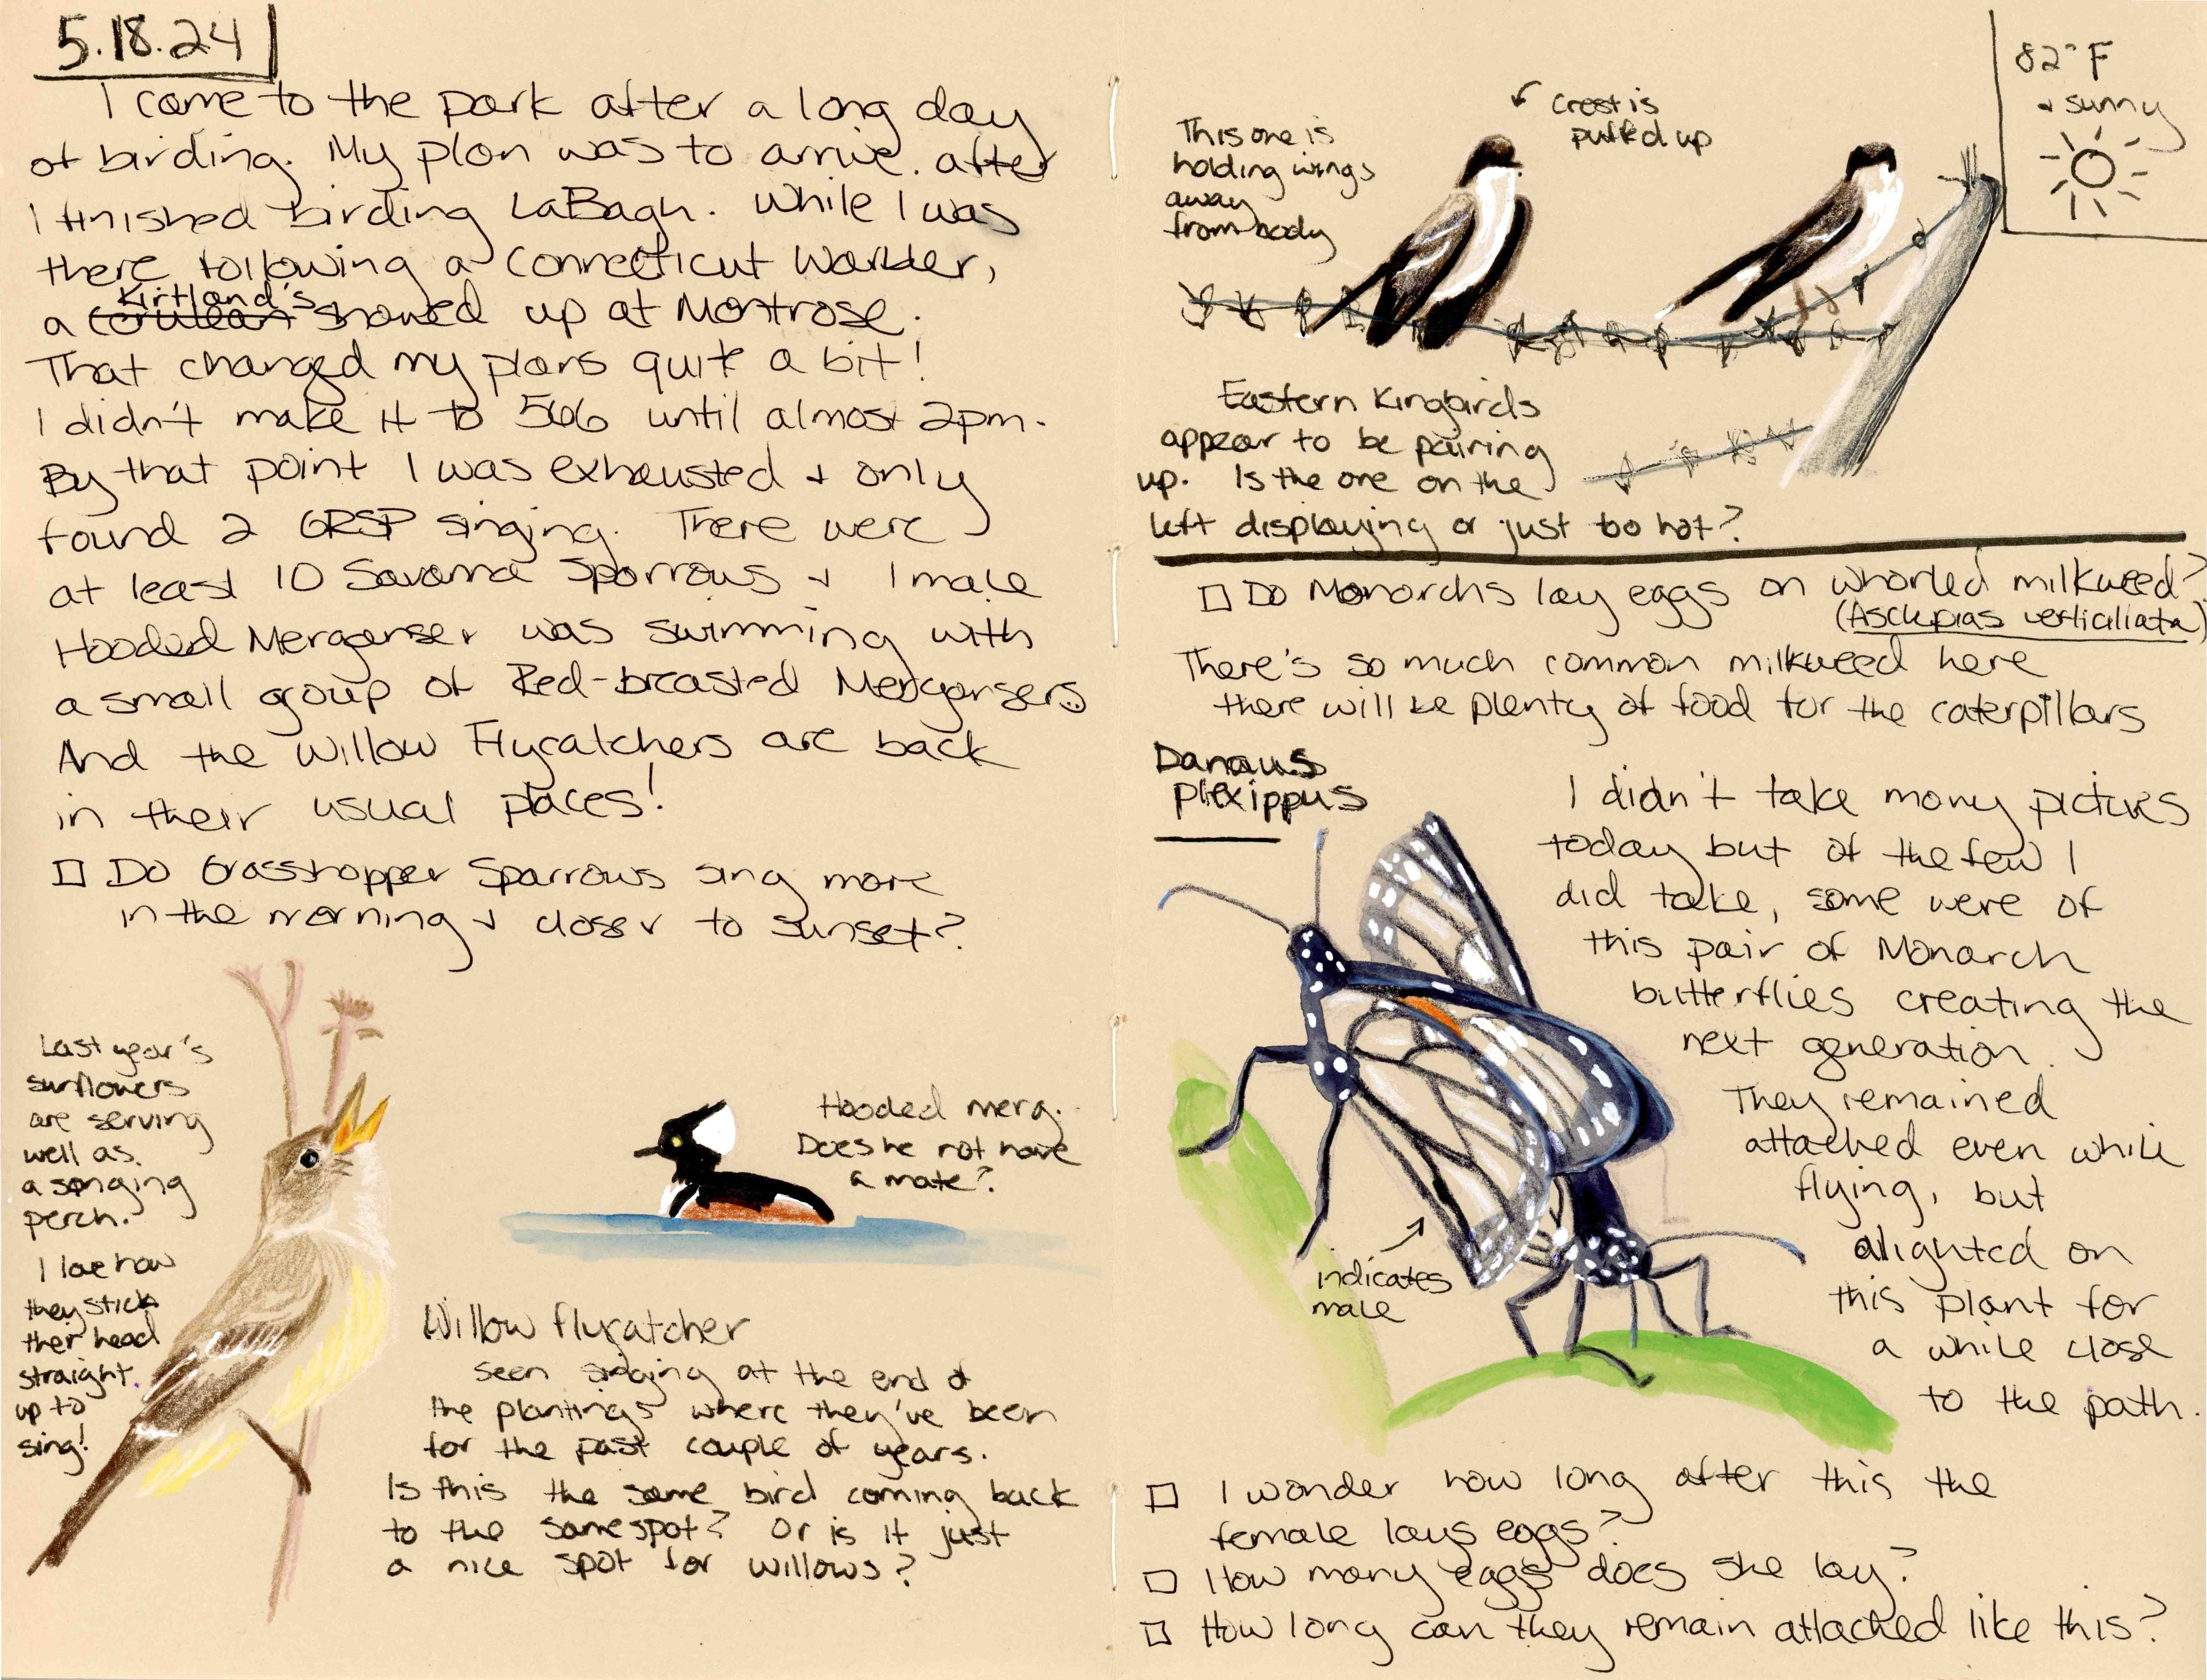 5.18.24
I came to the park after a long day
of birding. My plan was to arrive. after
I finished birding LaBagh. While I was
there following a Connecticut Warbler,
Kirtland's
a cerulean showed up at Montrose.
That changed my plans quite a bit!
I didn't make it to 566 until almost 2pm.
By that point I was exhausted + only
found 2 GRSP singing. There were
at least 10 Savanna Sparrows + 1 male
Hooded Merganser was swimming with
a small group of Red-breasted Mergansers
And the Willow Flycatchers are back
in their usual places!
□ Do Grasshopper Sparrows sing more
in the morning + closer to sunset?
Last year's
sunflowers
are serving
well as
a singing
perch.
I love how
they stick
their head
straight
up to
sing!
Hooded merg.
Does he not have
a mate?
Willow flycatcher
seen singing at the end of
the plantings where they've been
for the past couple of years.
Is this the same bird coming back
to the same spot? Or is it just
a nice spot for willows?
82°F
+ sunny
Crest is
puffed up
This one is
holding wings
away
from body
Eastern Kingbirds
appear to be pairing
up. Is the one on the
left displaying or just too hot?
□ Do Monarchs lay eggs on whorled milkweed?
(Asclepias verticiliata)
There's so much common milkweed here
there will be plenty of food for the caterpillars
Danaus
plexippus
I didn't take many pictures
today but of the few I
did take, some were of
this pair of Monarch
butterflies creating the
next generation.
They remained
attached even while
flying, but
alighted on
this plant for
a while close
to the path.
indicates
male
□ I wonder how long after this the
female lays eggs?
□ How many eggs does she lay?
□ How long can they remain attached like this?